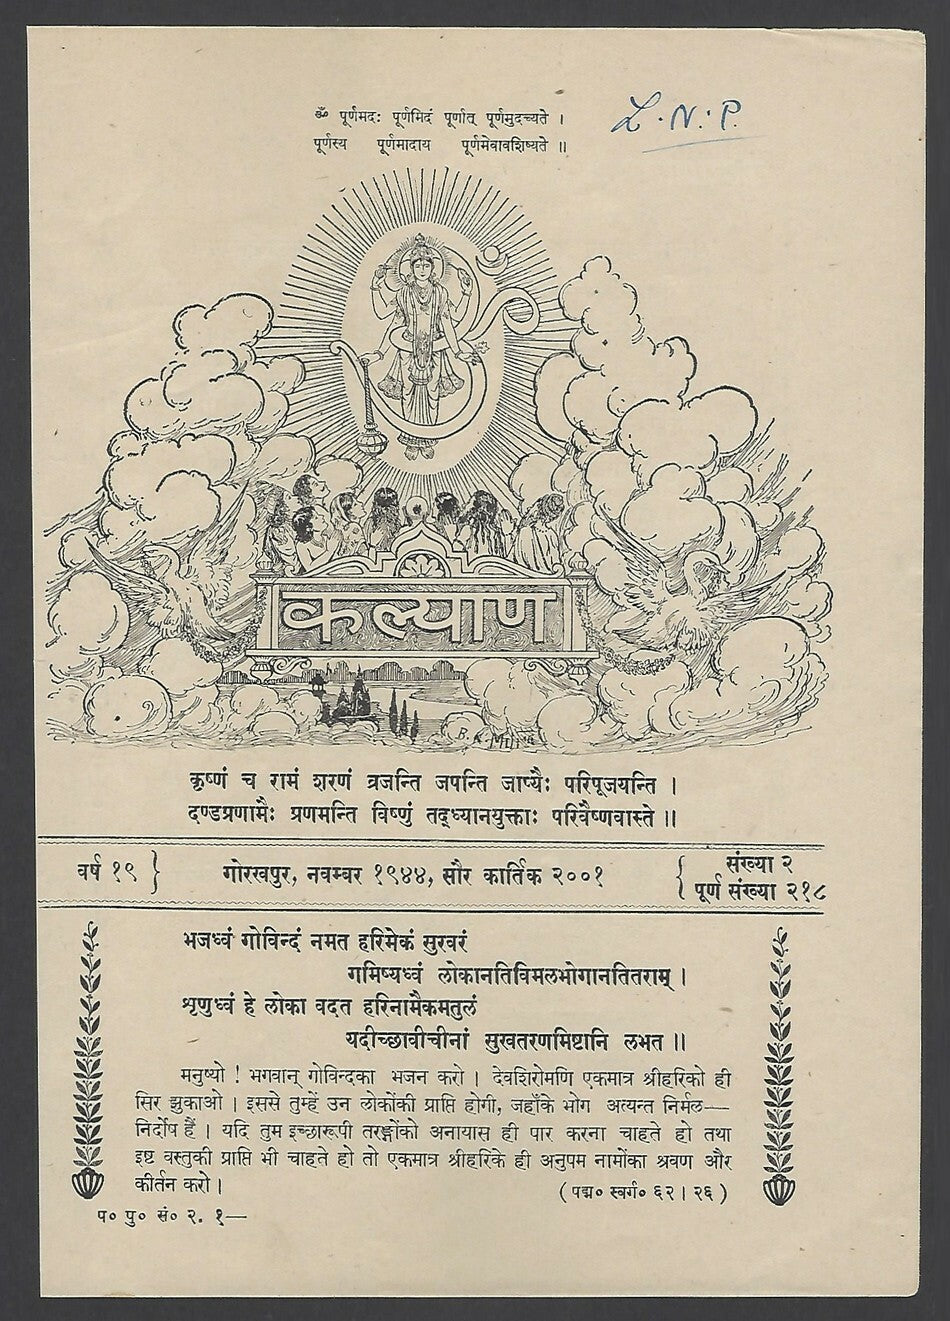 ॐ पूर्णमदः पूर्णमिदं पूर्णात् पूर्णमुदच्यते ।
L.N.P.
पूर्णस्य पूर्णमादाय पूर्णमेवावशिष्यते ॥
कल्याण
B.K. Mitra
कृष्णं च रामं शरणं व्रजन्ति जपन्ति जाप्यैः परिपूजयन्ति ।
दण्डप्रणामैः प्रणमन्ति विष्णुं तद्ध्यानयुक्ताः परिवैष्णवास्ते ॥
वर्ष १९ } गोरखपुर, नवम्बर १९४४, सौर कार्तिक २००१ { संख्या २
पूर्ण संख्या २१८
भजध्वं गोविन्दं नमत हरिमेकं सुरवरं
गमिष्यध्वं लोकानतिविमलभोगानतितराम् ।
श्रृणुध्वं हे लोका वदत हरिनामैकमतुलं
यदीच्छावीचीनां सुखतरणमिष्टानि लभत ॥
मनुष्यो ! भगवान् गोविन्दका भजन करो । देवशिरोमणि एकमात्र श्रीहरिको ही
सिर झुकाओ । इससे तुम्हें उन लोकोंकी प्राप्ति होगी, जहाँके भोग अत्यन्त निर्मल—
निर्दोष हैं । यदि तुम इच्छारूपी तरङ्गोंको अनायास ही पार करना चाहते हो तथा
इष्ट वस्तुकी प्राप्ति भी चाहते हो तो एकमात्र श्रीहरिके ही अनुपम नामोंका श्रवण और
कीर्तन करो ।	( पद्म० स्वर्ग० ६२ । २६ )
प० पु० सं० २. १—